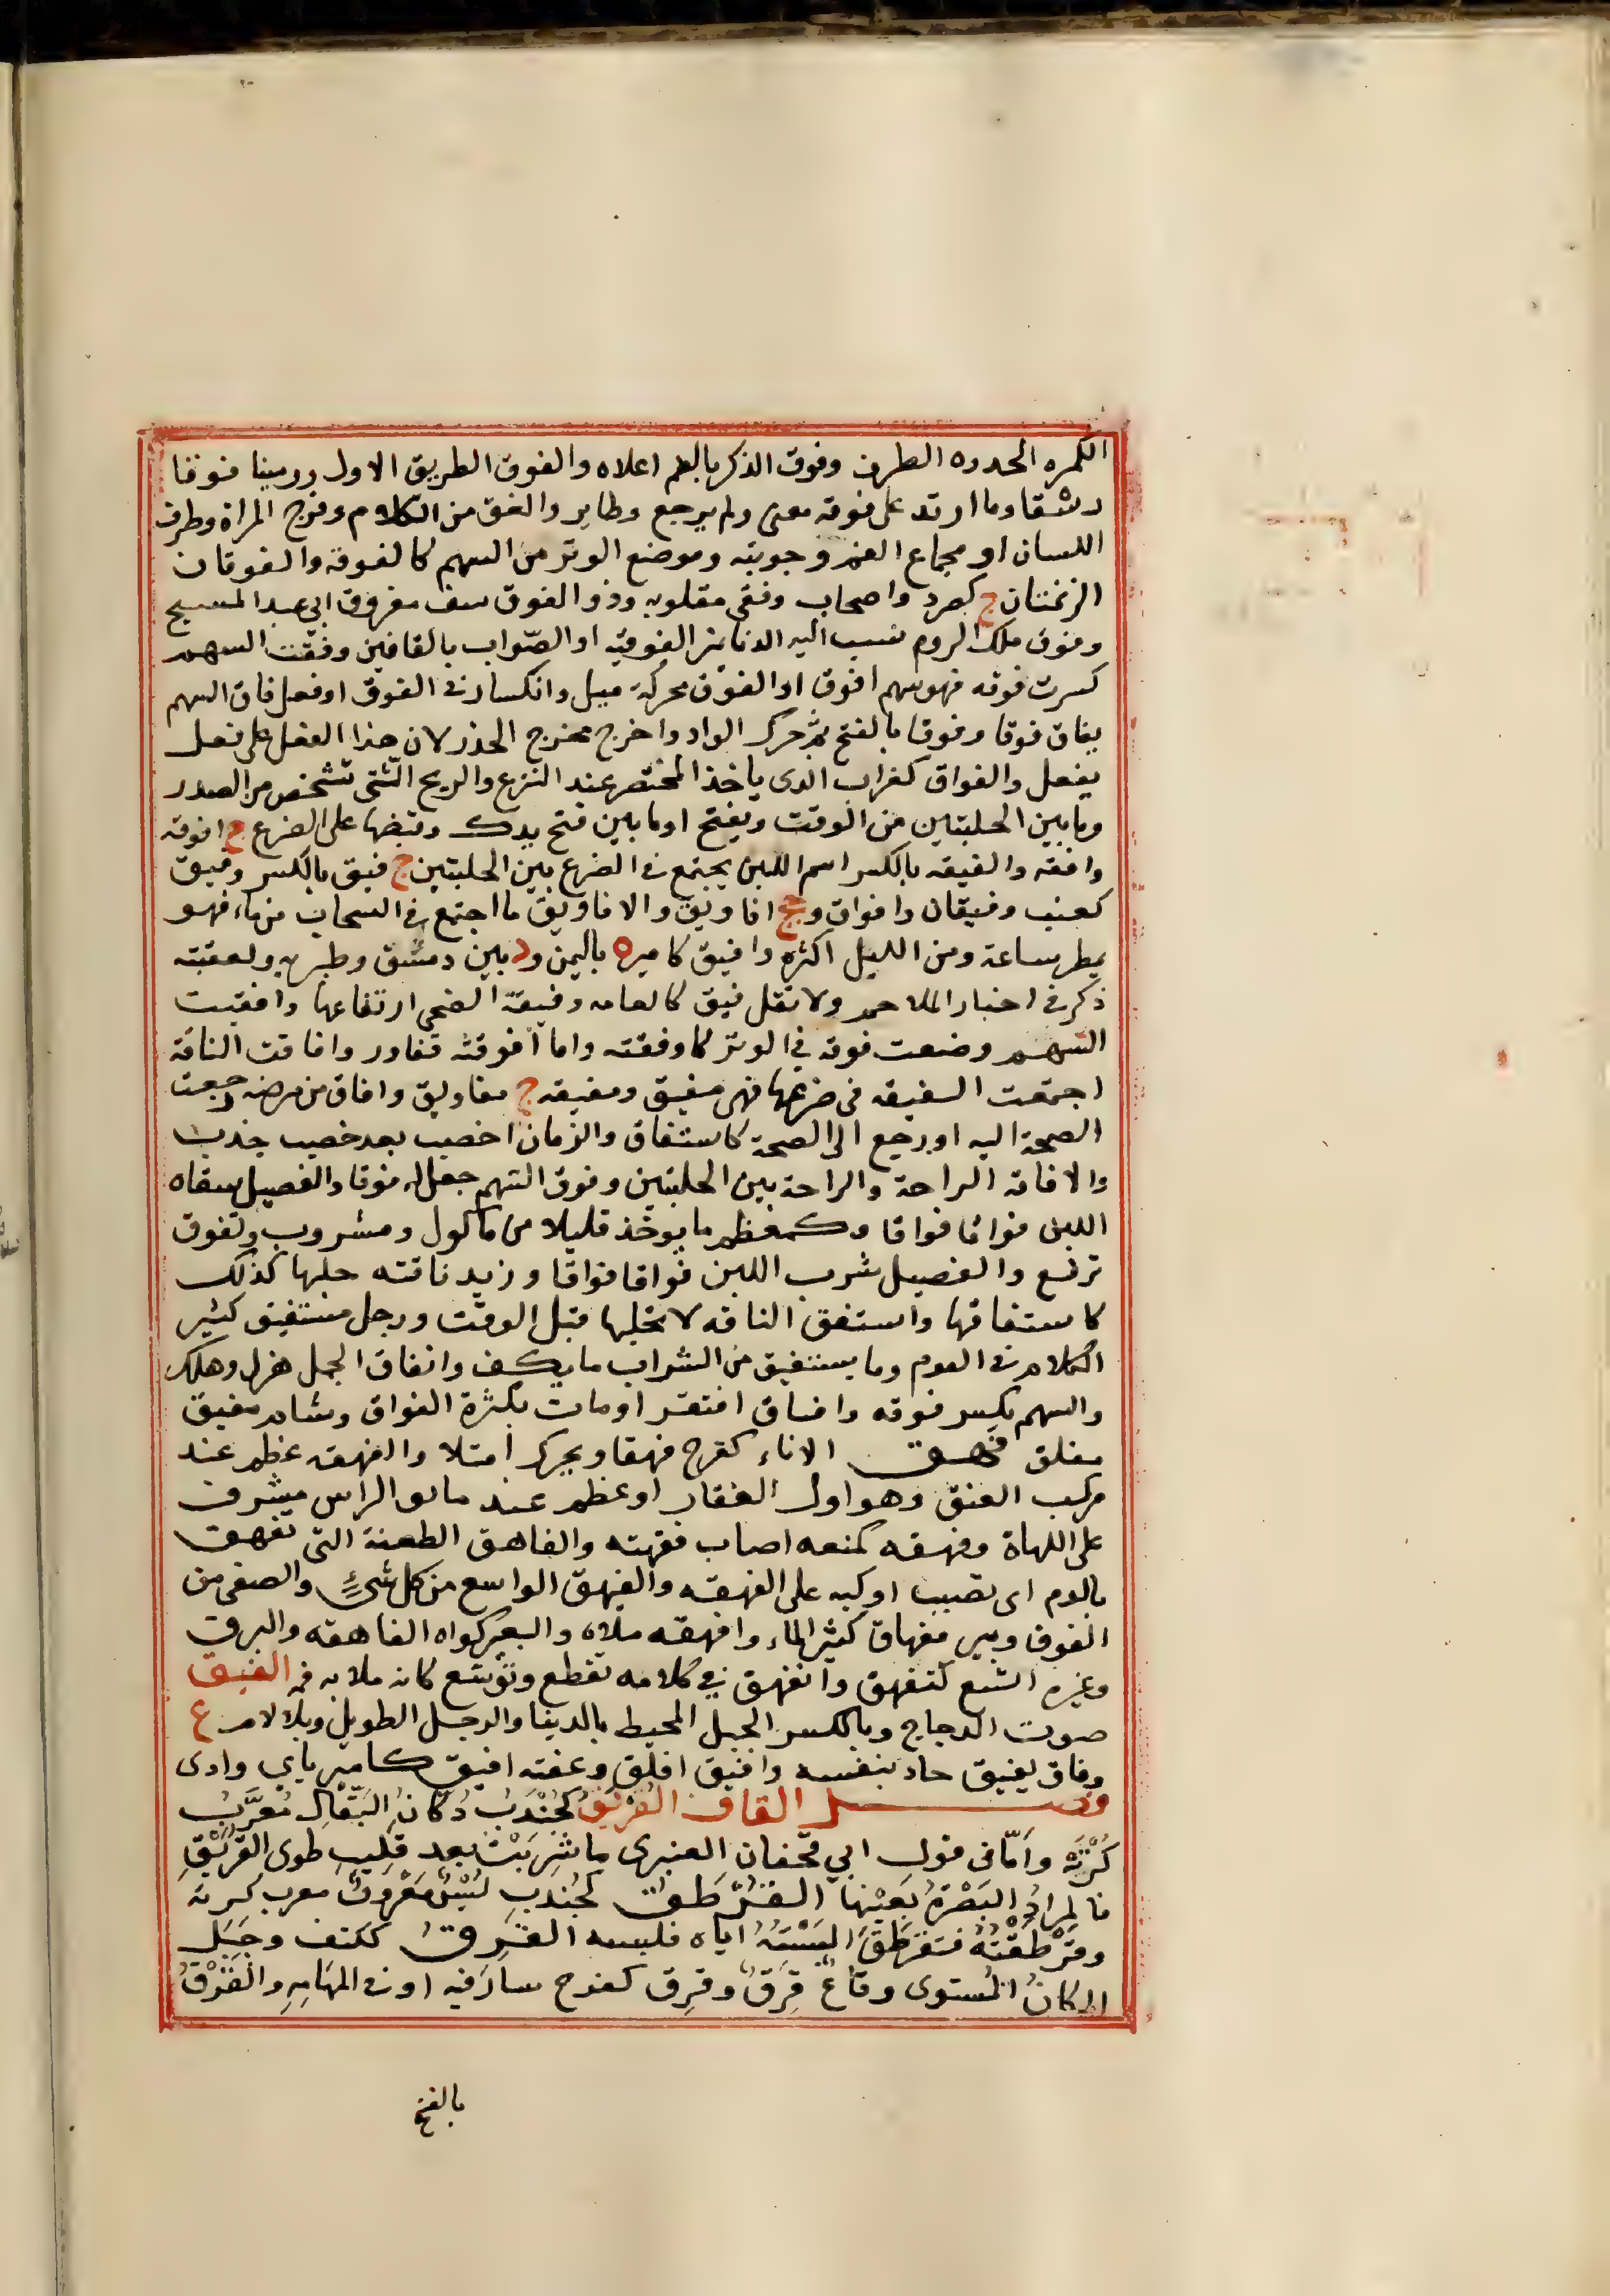 الكمره المحدده الطرف وفوق الذكر بالضم اعلاه والفوق الطريق الاول ورمينا فوقا
رشقا وما ارتد على فوقه مضى ولم يرجع وطاير والفق من الكلام وفرج المراة وطرف
اللسان او مجماع الفم وجوبته وموضع الوتر من السهم كالفوقة والفوقان
الزنمتان ج كصرد واصحاب وفقى مقلوبه وذو الفوق سف مفروق ابي عبد المسيح
وفوق ملك الروم نسب اليه الدنانير الفوقية او الصّواب بالقافين وفقت السهم
كسرت فوقه فهو سهم افوق او الفوق محركة ميل وانكسار في الفوق او فعل فاق السهم
يفاق فوقا وفوقا بالفتح ثم حرك الواو واخرج مخرج الحذر لان هذا الفعل على فعل
يفعل والفواق كغراب الدى ياخذ المحتضر عند النزع والريح الّتي تشخص من الصدر
وما بين الحلبتين من الوقت ويفتح او ما بين فتح يدك وقبضها على الضرع ج افوقه
وافقه والفيقه بالكسر اسم اللبن يجتمع في الضرع بين الحلبتين ج فيق بالكسر وفيق
كعنب وفيقان وافواق وجج افاويق والافاويق ما اجتمع في السحاب من ماء فهو
يمطر ساعة ومن الليل اكثره وافيق كامير ه باليمن ود بين دمشق وطبريه ولعقبته
ذكر في اخبار الملاحم ولا تقل فيق كالعامه وفيقة الضحى ارتفاعها وافقيت
السهم وضعت فوقه في الوتر كاوفقته واما افوقته فنادر وافاقت الناقة
اجتمعت الفيقه في ضرعها فهى مفيق ومفيقه ج مفاويق وافاق من مرضه رجعت
الصحة اليه او رجع الى الصحة كاستفاق والزمان اخصب بعد خصيب جذب
والافاقه الراحة والراحة بين الحلبتين وفوق السهم جعل له فوقا والفصيل سقاه
اللبن فواقا فواقا وكمعظم ما يوخذ قليلا من ماكول ومشروب وتفوق
ترفع والفصيل شرب اللبن فواقا فواقا وزيد ناقته حلبها كذلك
كاستفاقها واستفق الناقه لا تحلبها قبل الوقت ورجل مستفيق كثير
الكلام في النوم وما يستفيق من الشراب ما يكف وانفاق الجمل هزل وهلك
والسهم تكسر فوقه وافتاق افتقر او مات بكثرة الفواق وشاعر مفيق
مفلق فهق الاناء كفرح فهقا ويحرك امتلا والفهقه عظم عند
مركب العنق وهو اول الفقار او عظم عند مابق الراس مشرف
على اللهاة وفهقه كمنعه اصاب فقهته والفاهق الطعنة التى تفهق
بالدم اى تصبب او كيه على الفهقه والفيهق الواسع من كل شىءٍ والصفى من
الفوق وبير مفهاق كثير الماء وافهقه ملاه والبعير كواه الفاهقه والبرق
وغيره اتسع كتفهق وانفهق في كلامه تقطع وتوّسّع كانه ملا به فمه الفيق
صوت الدجاج وبالكسر الجبل المحيط بالدينا والرجل الطويل وبلا لام ع
وفاق يفيق جاد بنفسه وافيق افلق وعفته افيق كامير ياي واوى
فصل القاف القُرْبَقُ كجُنْدَبٍ دُكانُ البَقَّالِ مُعرَّبُ
كُرْبَه وأمّا في قول ابي قحفان العنبرى ما شَرِبَتْ بعد قَليبِ طوى القُرْبَقِ
فالمرادُ البَصْرَةُ بعَيْنها القُرْطَقُ كجُندَبٍ لُبْسٌ مَعْروفٌ معرب كرته
وقَرْطَقْتُهُ فتَقَرطَقَ البَسْتُهُ اياه فلبسه القَرِقُ ككتف وجَبَلٍ
المكانُ المُستوى وقاعٌ قَرِقٌ وقرِق كفرح سار فيه او في المهامِهِ والقَرْقُ
بالفتح